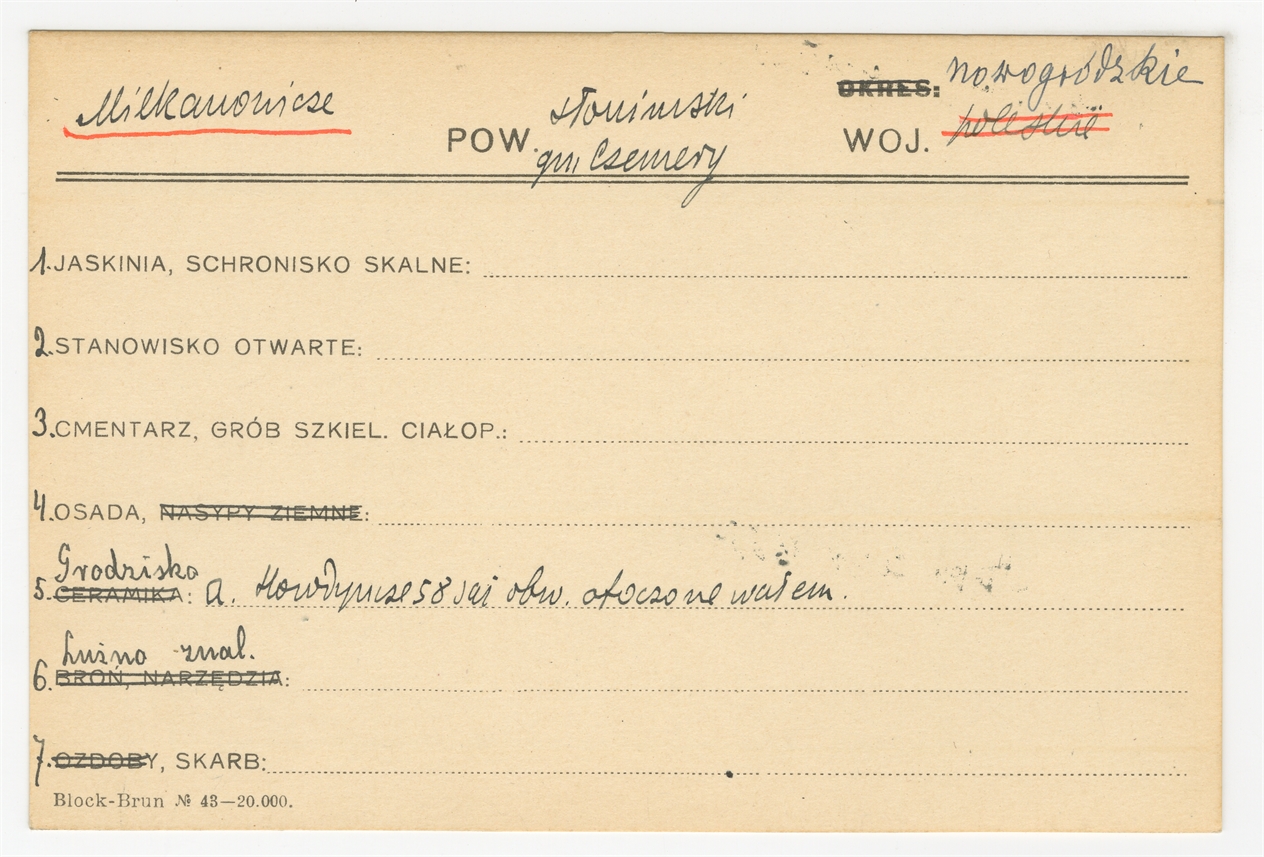 Milkanowicze
POW. słonimski
gm. Czemery
OKRES: nowogródzkie
WOJ. poleskie
1. JASKINIA, SCHRONISKO SKALNE:
2. STANOWISKO OTWARTE:
3. CMENTARZ, GRÓB SZKIEL. CIAŁOP.:
4. OSADA, NASYPY ZIEMNE:
Grodzisko
5. CERAMIKA: a. 58 sąż obw. otoczone wałem.
Luźno znal.
6. BROŃ, NARZĘDZIA:
7. OZDOBY, SKARB:
Block-Brun № 43—20.000.